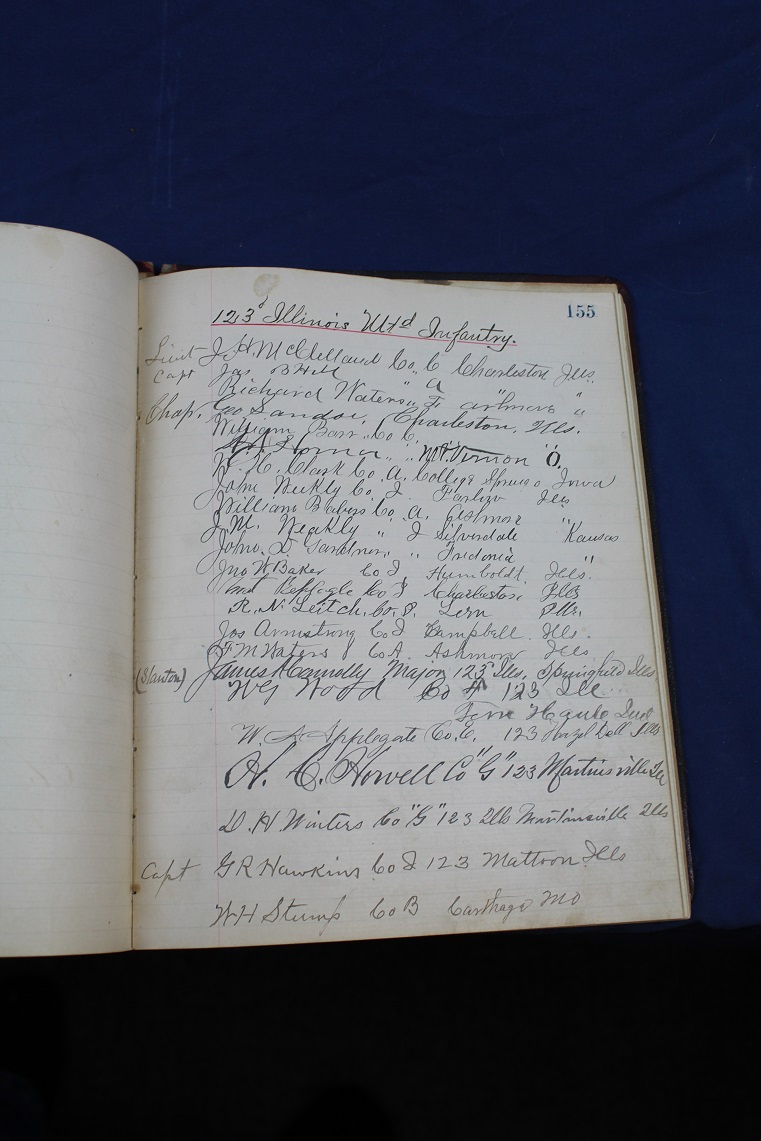 155
123d Illinois Mtd Infantry.
Lieut J. H. McClelland Co. C Charleston Ills.
Capt Jas. B Hill " a " "
Richard Waters " F ashmore "
Chap. Geo Sandoe, Charleston, Ills.
William Barr Co C
Horner " " Mt Vernon "O.
H. C. Clark Co. A. College Springs Iowa
John Weekly Co I Ills
William Babers Co. A. Ashmore "
J. M. Neakly " I Silverdale Kansas
John. L. Gardner, " Fredonia "
Jno W Baker Co I Humboldt. Ills.
Replogle Co I Charleston Ills
R. N. Leitch. Co. Lern Ills.
Jos Armstrong Co I Campbell. Ills.
F M Waters Co A. Ashmore Ills
(Stanton) James A Connolly Major 123d Ills. Springfield Ills
W G Wood Co 123 Ill
Terre Haute Ind
W. A Applegate Co. C. 123 Hazel Dell Ills
H. C. Howell Co "G" 123 Martinsville Ill
D. H Winters Co "G" 123 Ills Martinsville Ills
Capt G R Hawkins Co I 123 Mattoon Ills
W H Stump Co B Carthage Mo